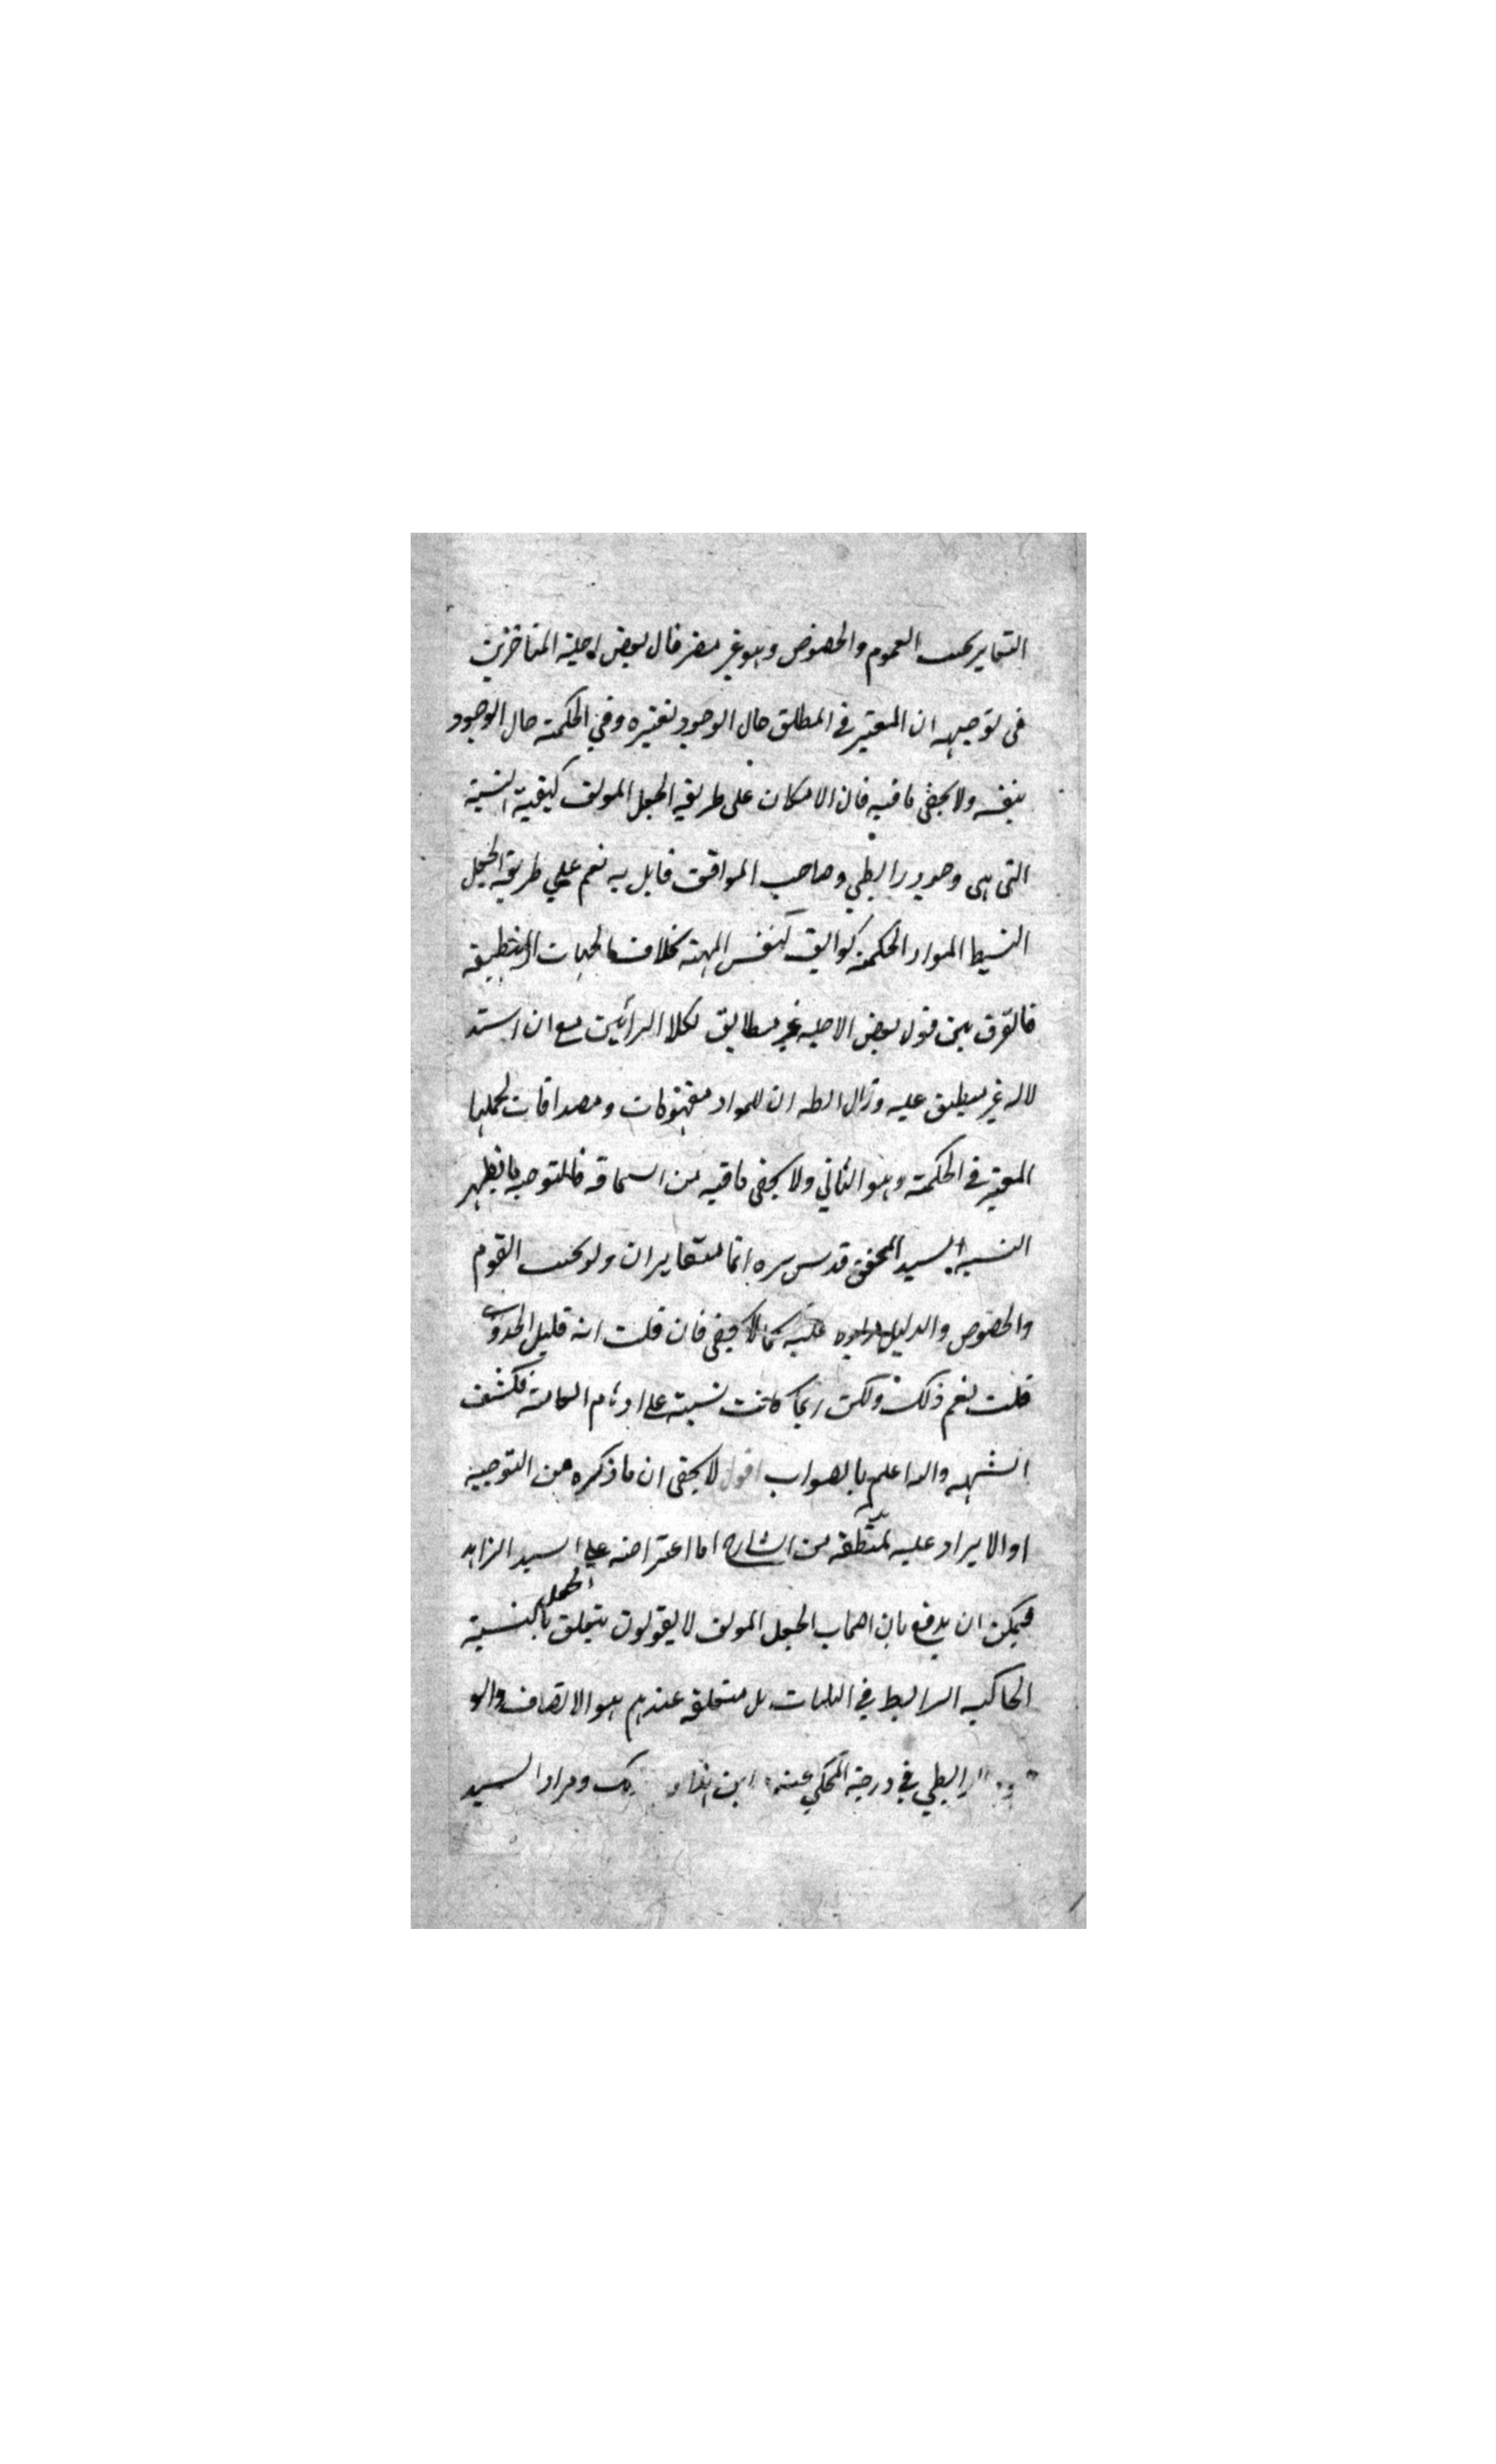 التغاير بحسب العموم والخصوص وهو غير مضر قال بعض اجلة المتاخرين
فى توجيهه ان المعتبر فى المطلق حال الوجود لغيره وفي الحكمة حال الوجود
بنفسه ولا يخفى ما فيه فان الامكان على طريقه الجعل المولف كيفية النسبة
التى هى وجود رابطي وصاحب المواقف قايل به نعم علي طريقه الجعل
البسيط المواد الحكمة كوايف لنفس المهية بخلاف الجهات المنطقية
فالفرق بين قول بعض الاجلة غير مطابق لكلا الرائين مع ان استد
لاله غير منطبق عليه وقال ان للمواد مفهومات ومصداقات لحملها
المعتبر فى الحكمة وهو الثاني ولا يخفى ما فيه من السماقة فالتوجيه ما يظهر
السيد المحقق قدس سره انما متغايران ولو بحسب القوم
والخصوص والدليل عليه كما لا يخفى فان قلت انه قليل الجدوى
قلت نعم ذلك ولكن ربما كانت نسبة على اوهام العامة فكشف
الشبهه والله اعلم بالصواب اقول لا يخفى ان ما ذكره من التوجيه
او الايراد عليه من الشارح اما اعتراضه علي السيد الزاهد
فيمكن ان يدفع بان اصحاب الجعل المولف لا يقولون يتعلق الجعل بالنسبة
الحاكية الرابط في بل متعلقه عندهم هو الاتصاف والو
الرابطي في درجة المحكي عنه اين هذا ومراد السيد